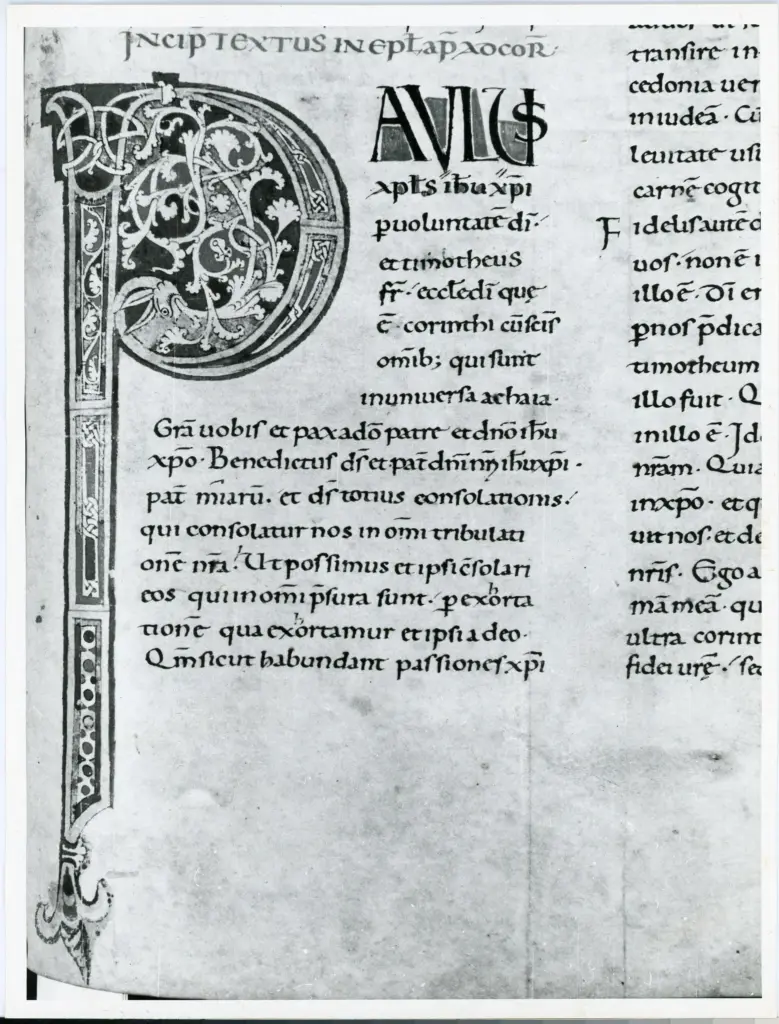 INCIP TEXTUS IN EPĿ AP̄ XO COR̄
PAULUS
xpłs ihu xp̄i
ꝑuoluntatē dī·
et timotheus
fr̄· eccłe dī quę
ē· corinthi cū sc̄is
om̄ib; qui sunt
in uniuersa achaia·
Gr̄a uobis et pax a dō patre et dn̄o ih̄u
xp̄o· Benedictus d̄s et pat̄ dn̄i nr̄i ih̄u xp̄i·
pat̄ miarū. et d̄s totius consolationis.
qui consolatur nos in om̄i tribulati
onē nr̄a. Ut possimus et ipsi c̄solari
eos qui in om̄i p̄sura sunt. ꝑ exhorta
tionē qua exhortamur et ipsi a deo·
Qm̄ sicut habundant passiones xp̄i
transire in
cedonia uen
in iudeā· Cū
leuitate usu
carnē cogit
Fidelis autē d
uos· non ē i
illo ē· Dī en
ꝑ nos p̄dica
timotheum
illo fuit· Q
in illo ē· Id
nr̄am· Quia
in xp̄o· et q
uit nos· et de
nr̄is· Ego a
mā meā· qu
ultra corint
fidei urę· se